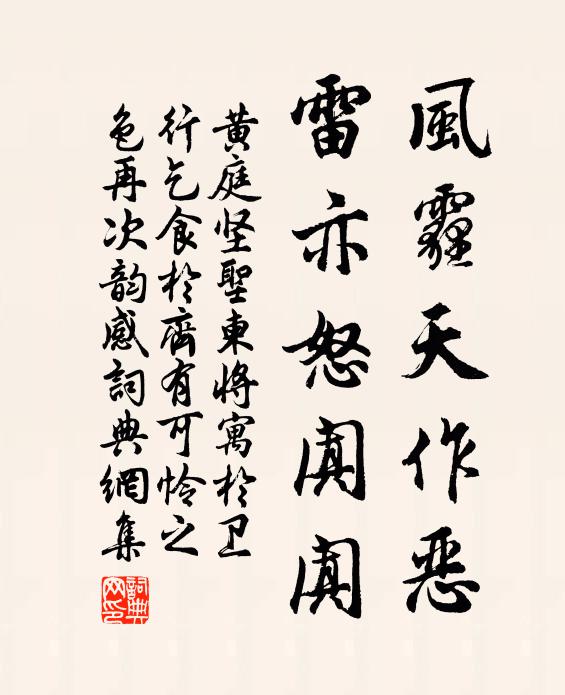 風霾天作恶
雷亦怒闐闐
黄庭坚聖柬將寓於卫
行乞食於齊有可怜之
色再次韵感詞典網集
詞典网印